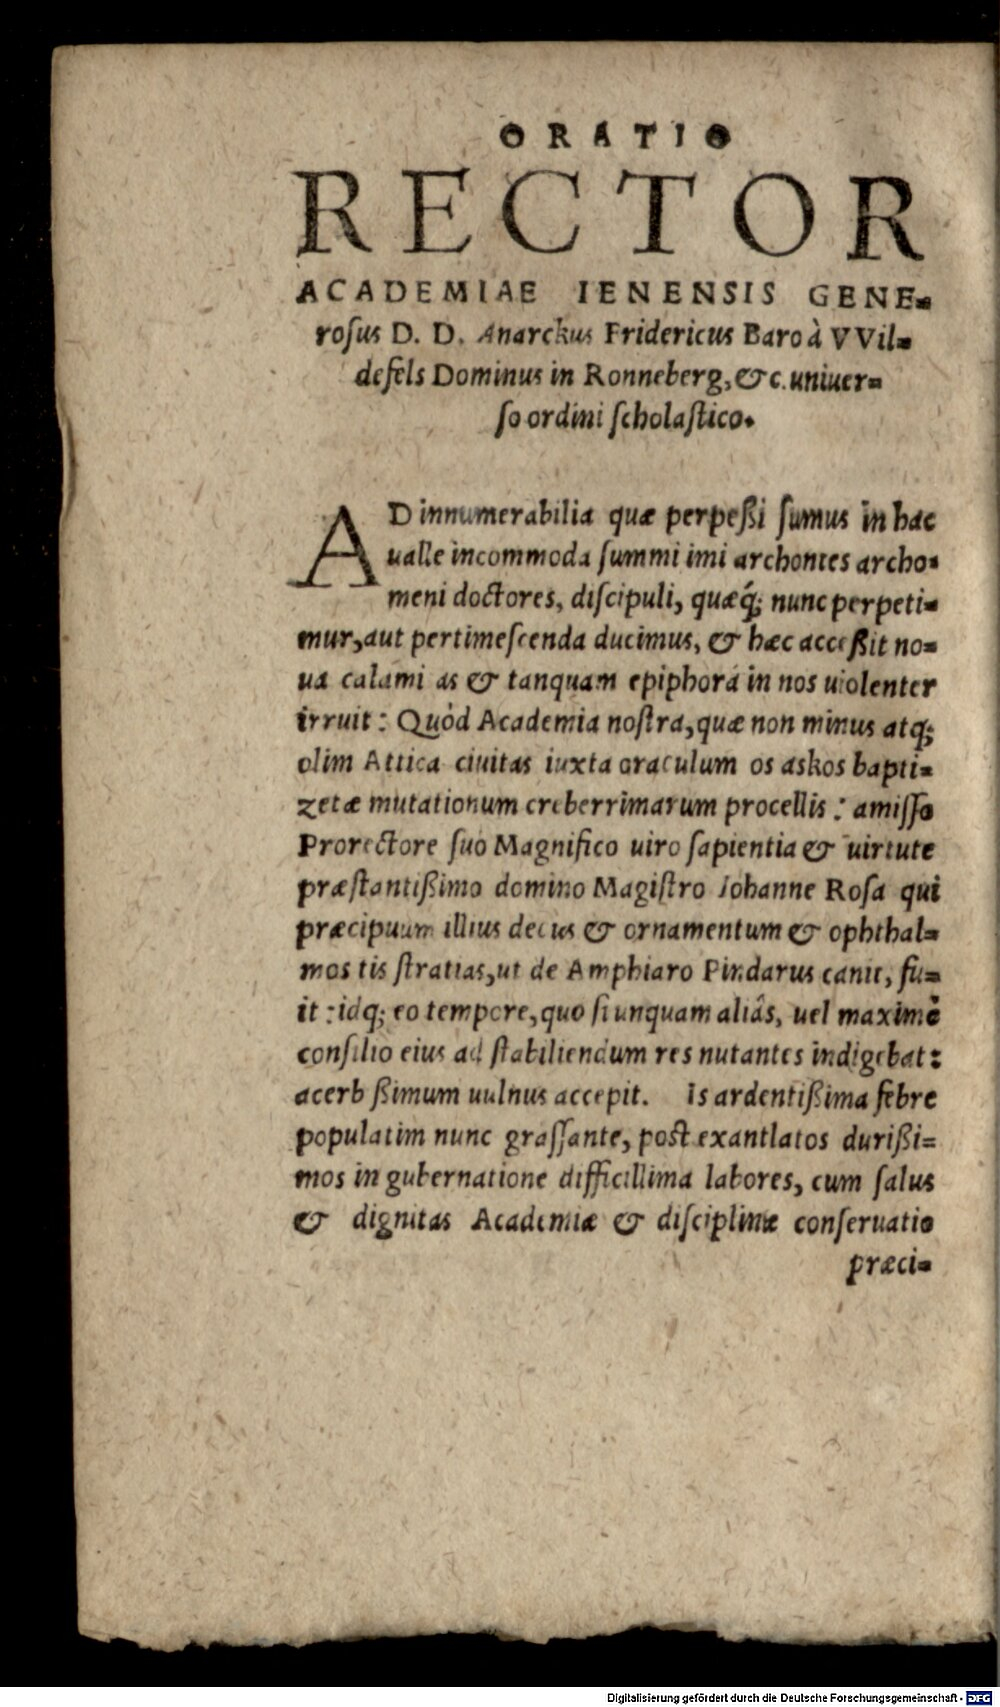 ORATIO
RECTOR
ACADEMIAE IENENSIS GENE=
roſus D. D. Anarckus Fridericus Baro à VVil=
defels Dominus in Ronneberg, &c. uniuer=
ſo ordini ſcholaſtico.
AD innumerabilia quæ perpeßi ſumus in hac
ualle incommoda ſummi imi archontes archo=
meni doctores, diſcipuli, quæq́; nunc perpeti=
mur, aut pertimeſcenda ducimus, & hæc acceßit no=
ua calami as & tanquam epiphora in nos uiolenter
irruit: Quòd Academia noſtra, quæ non minus atq;
olim Attica ciuitas iuxta oraculum os askos bapti=
zetæ mutationum creberrimarum procellis: amiſſo
Prorectore ſuo Magnifico uiro ſapientia & uirtute
præſtantißimo domino Magiſtro Iohanne Roſa qui
præcipuum illius decus & ornamentum & ophthal=
mos tis ſtratias, ut de Amphiaro Pindarus canit, fu=
it: idq; eo tempore, quo ſi unquam aliâs, uel maximè
conſilio eius ad ſtabiliendum res nutantes indigebat:
acerb ßimum uulnus accepit. Is ardentißima febre
populatim nunc graſſante, post exantlatos durißi=
mos in gubernatione difficillima labores, cum ſalus
& dignitas Academiæ & diſciplinæ conſeruatio
præci=
Digitalisierung gefördert durch die Deutsche Forschungsgemeinschaft - DFG